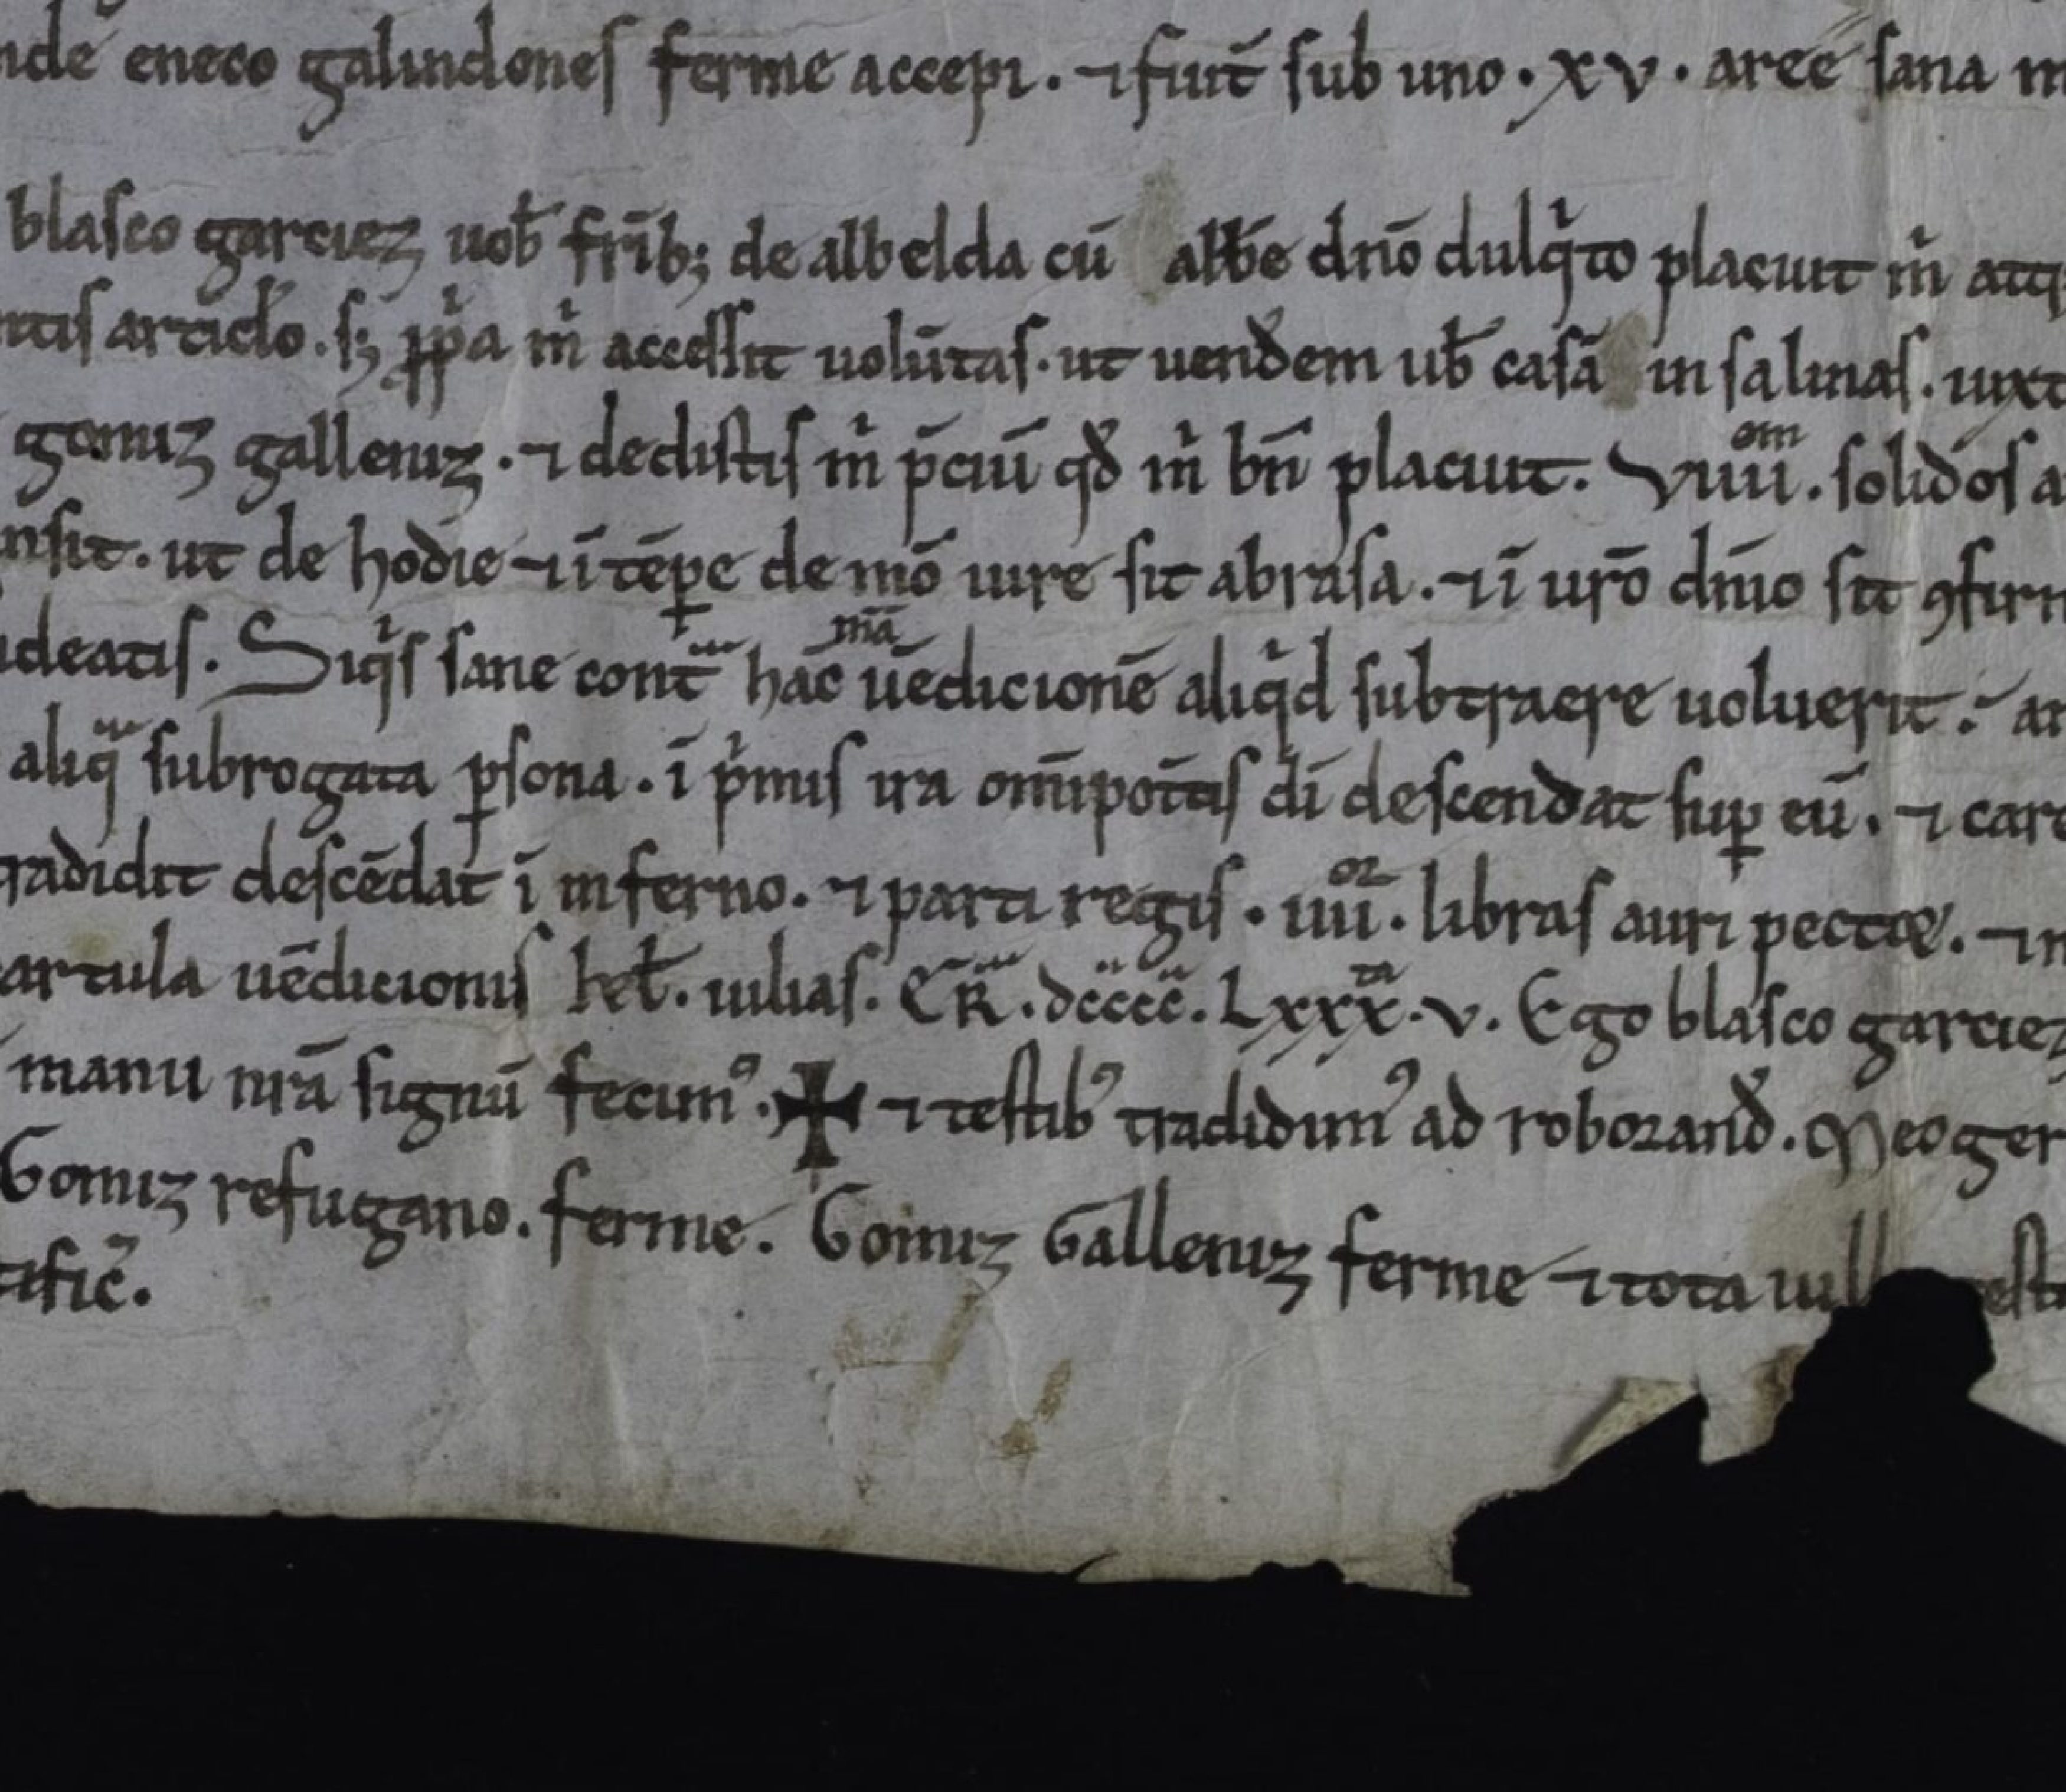 nde eneco galindones ferme accepi. ⁊ fuit̄ sub uno. xv. aree sana m
blasco garciez uob̄ fr̄ib; de albelda cū albe dn̄o dulqͥto placuit mͥ atq
ntis articl̄o. s; pͥpa mͥ accessit uolūtas. ut uendem ub̄ casā in salinas. iuxt
gomiz galleniz. ⁊ dedistis mͥ p̄ciū qđ mͥ bn̄ placuit. Viiii om. solidos a
nsit. ut de hodie ⁊ ī tēꝑe de mō iure sit abrasa. ⁊ ī ur̄o dn̄io sit ꝯfirm
ideatis. Siqͥs sane cont̄ hāc mā uēdicionē aliqͥd subtraere uoluerit. an
aliq̄ subrogata ꝑsona. ī pͥmis ira om̄ipotētis dī descendat suꝑ eū. ⁊ car
tradidit descēdat ī inferno. ⁊ parti regis. iiii or. libras auri pectæ. ⁊ in
artula uēdicionis kł. iulias. ER̄. dcccc. Lxxx ta. v. Ego blasco garciez
manu nr̄a signū fecimꝰ. ✠ ⁊ testibꝰ tradidimꝰ ad roborand̄. Meo ger
Gomiz refugano. ferme. Gomiz Galleniz ferme ⁊ tota uill est
tific̄.